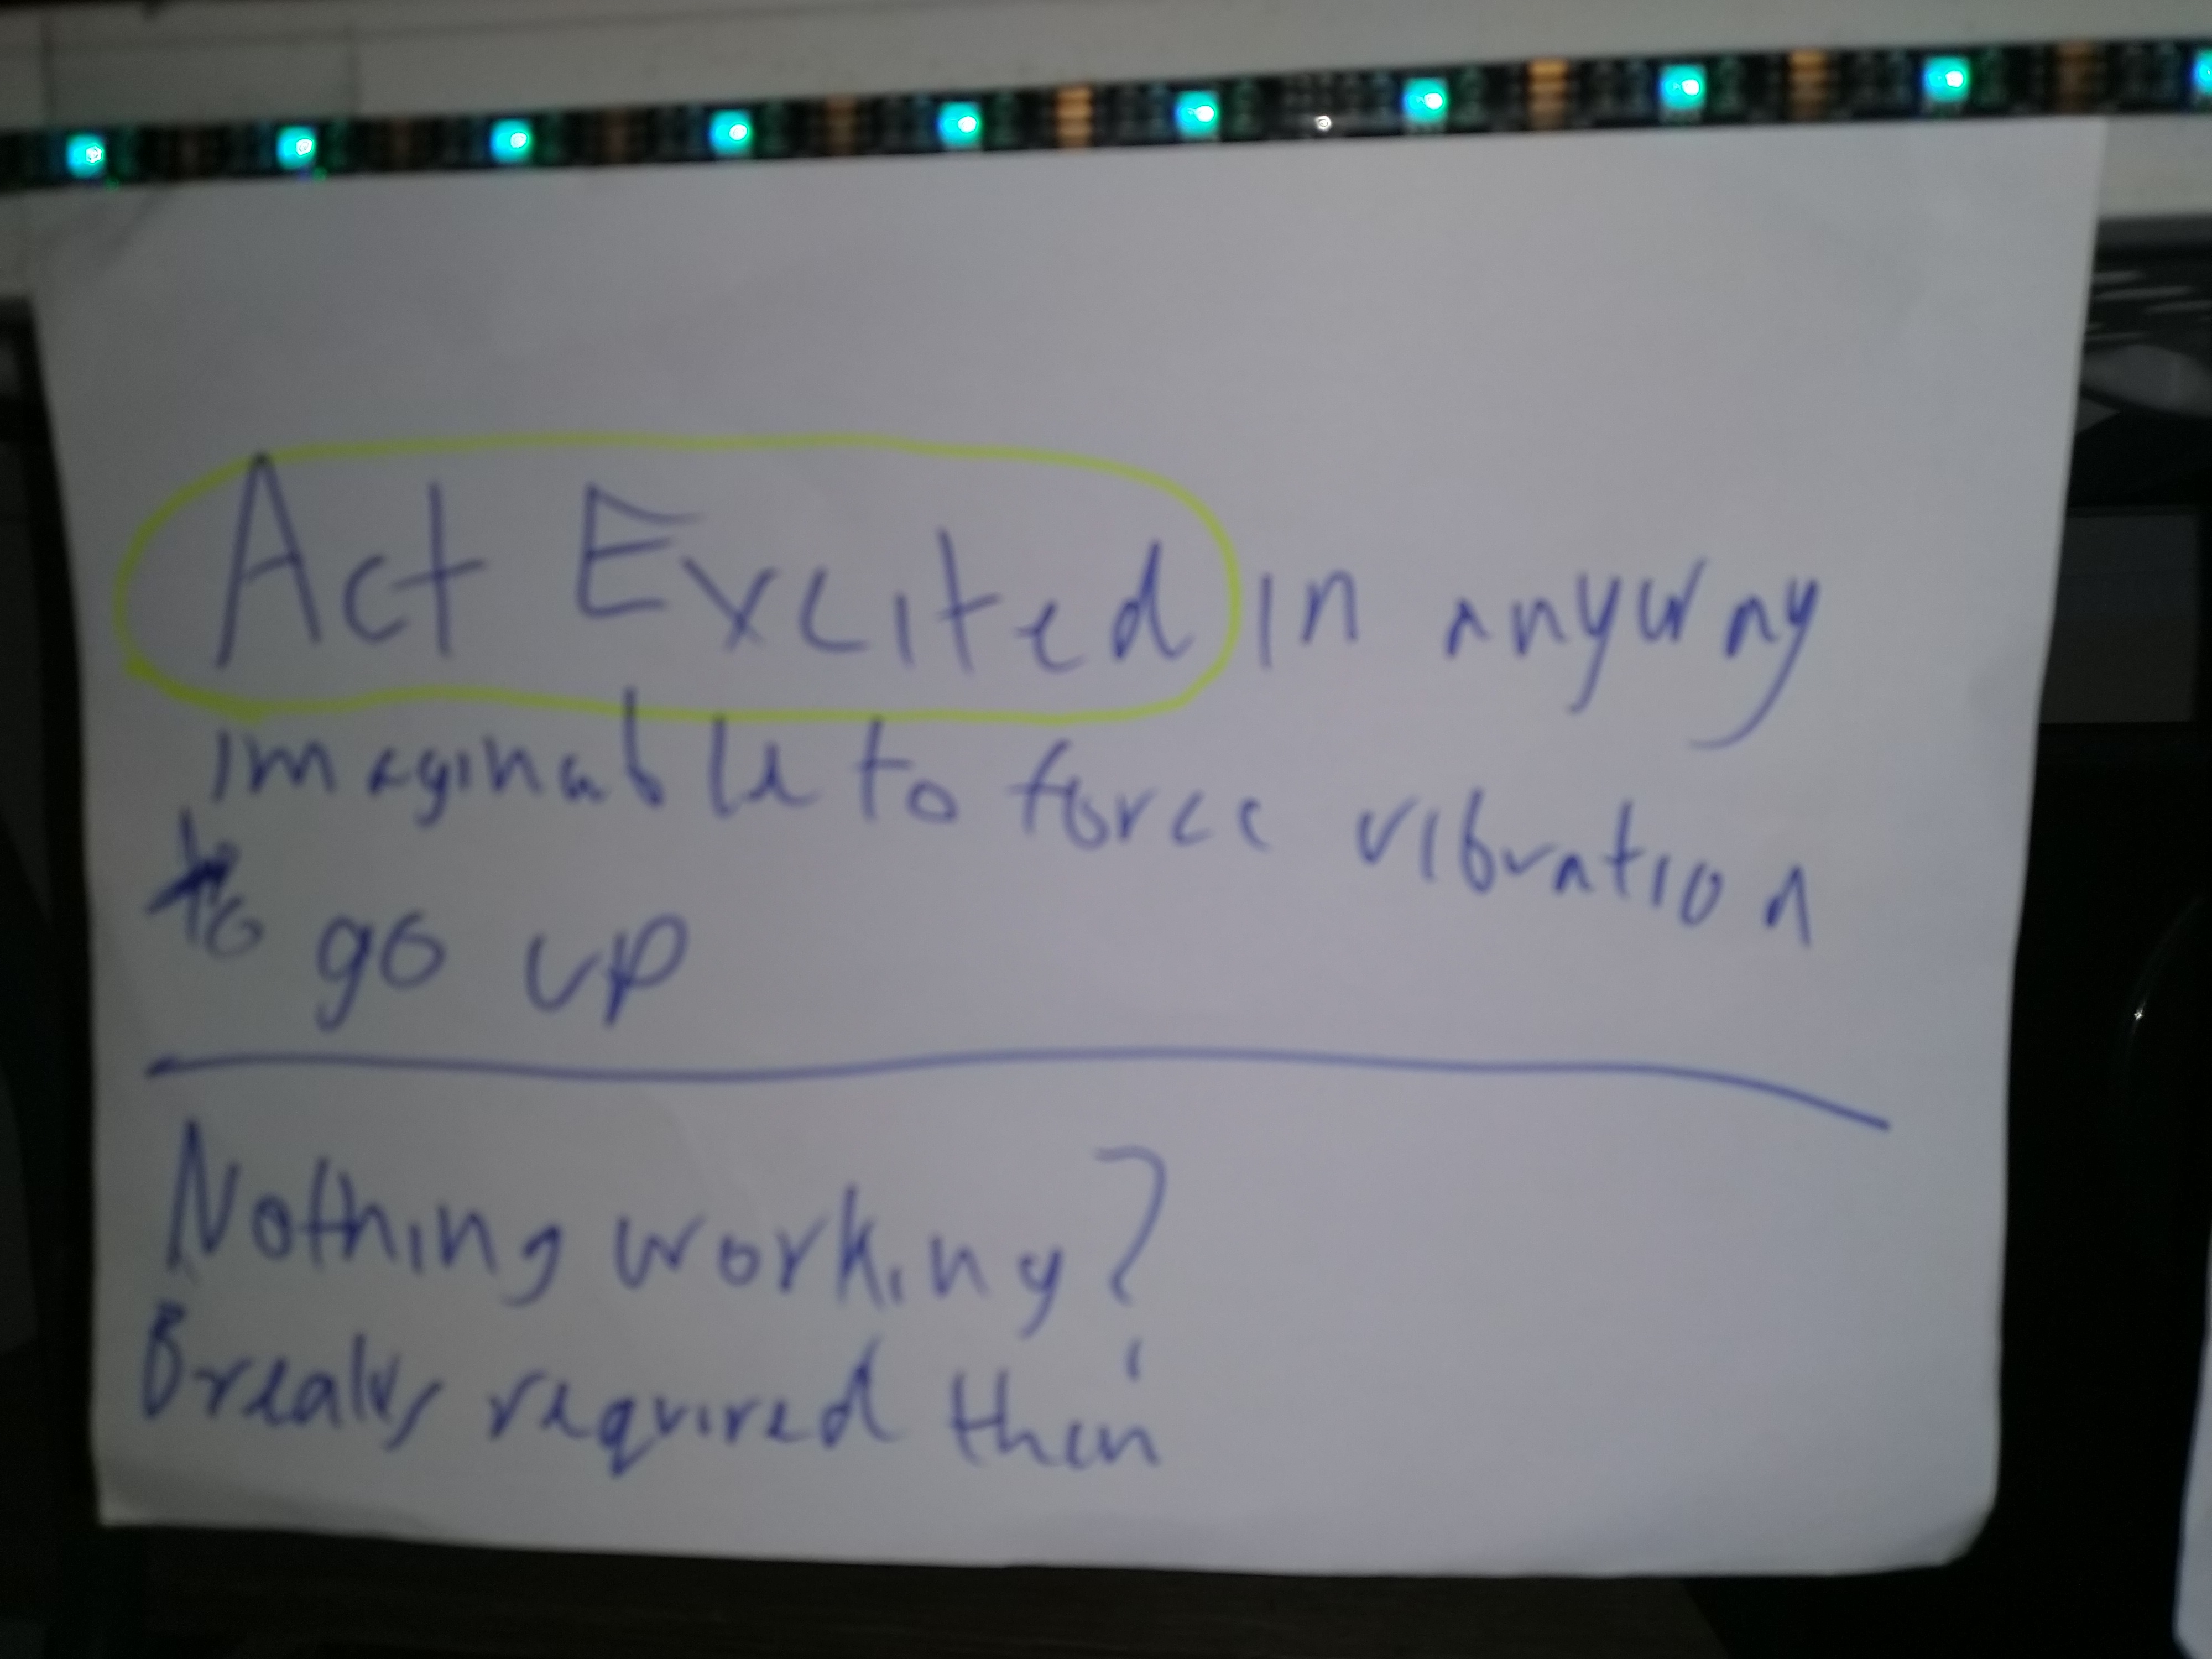 Act Excited in anyway
imaginable to force vibration
to go up
Nothing working?
Breaks required then